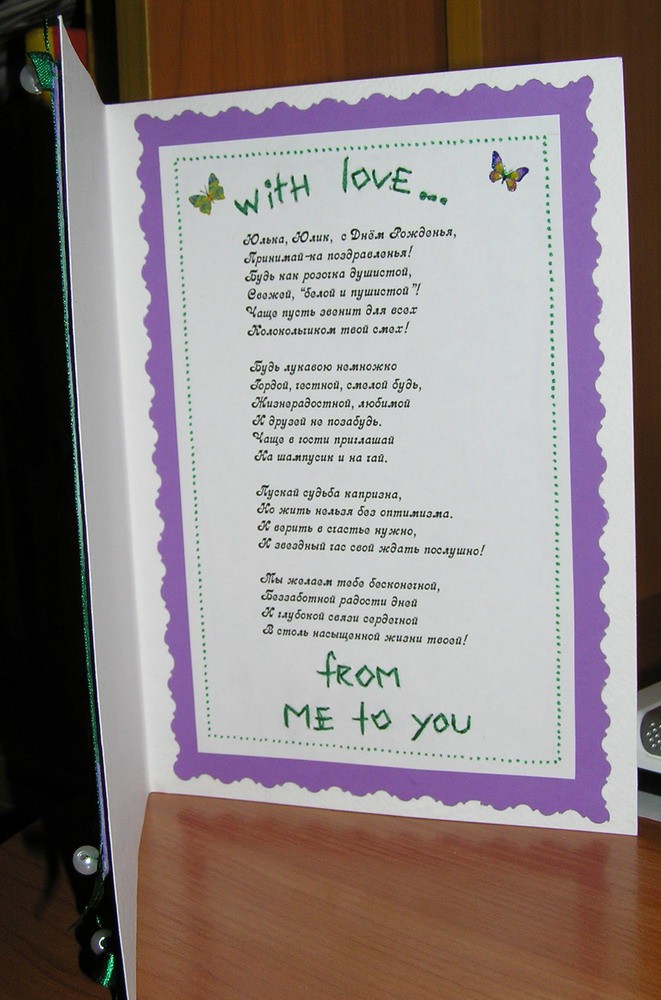 With love...
Юлька, Юлик, с Днём Рожденья,
Принимай-ка поздравленья!
Будь как розочка душистой,
Свежей, "белой и пушистой"!
Чаще пусть звенит для всех
Колокольчиком твой смех!
Будь лукавою немножко
Гордой, честной, смелой будь,
Жизнерадостной, любимой
И друзей не позабудь.
Чаще в гости приглашай
На шампусик и на чай.
Пускай судьба капризна,
Но жить нельзя без оптимизма.
И верить в счастье нужно,
И звездный час свой ждать послушно!
Мы желаем тебе бесконечной,
Беззаботной радости дней
И глубокой связи сердечной
В столь насыщенной жизни твоей!
from
ME to you